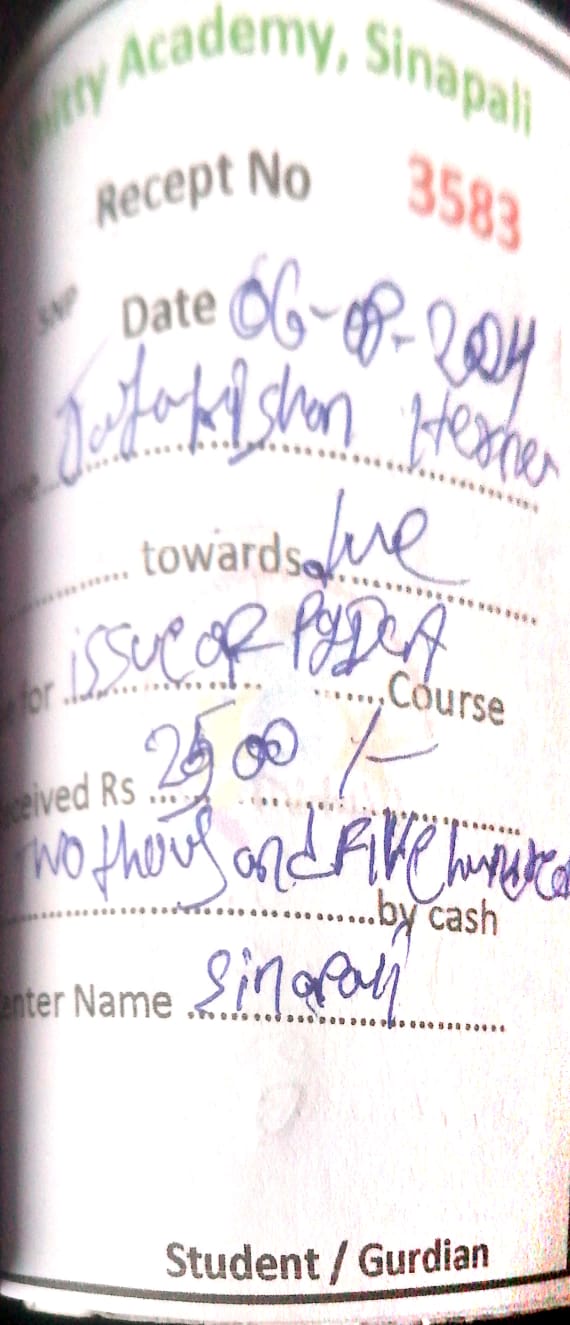 Academy, Sinapali
Recept No 3583
SNP Date 06-08-2024
towards due
for issue of PGDCA Course
Received Rs 2500/-
Two thousand Five hundred
by cash
Center Name Sinapali
Student / Gurdian